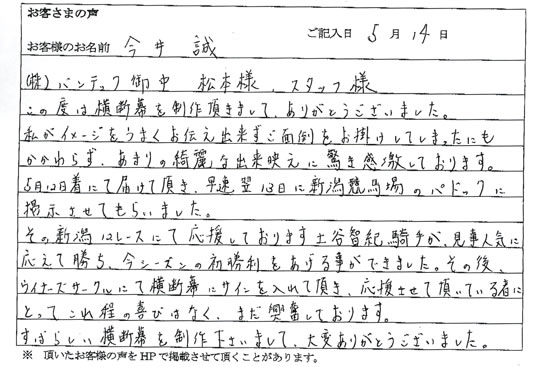 お客さまの声
ご記入日 5月14日
お客様のお名前 今井 誠
(株)バンテック御中 松本様、スタッフ様
この度は横断幕を制作頂きまして、ありがとうございました。
私がイメージをうまくお伝え出来ずご面倒をお掛けしてしまったにも
かかわらず、あまりの綺麗な出来映えに驚き感激しております。
5月12日着にて届けて頂き、早速翌13日に新潟競馬場のパドックに
掲示させてもらいました。
その新潟12レースにて応援しております土谷智紀騎手が、見事人気に
応えて勝ち、今シーズンの初勝利をあげる事ができました。その後、
ウイナーズサークルにて横断幕にサインを入れて頂き、応援させて頂いている者に
とってこれ程の喜びはなく、まだ興奮しております。
すばらしい横断幕を制作下さいまして、大変ありがとうございました。
※ 頂いたお客様の声をHPで掲載させて頂くことがあります。